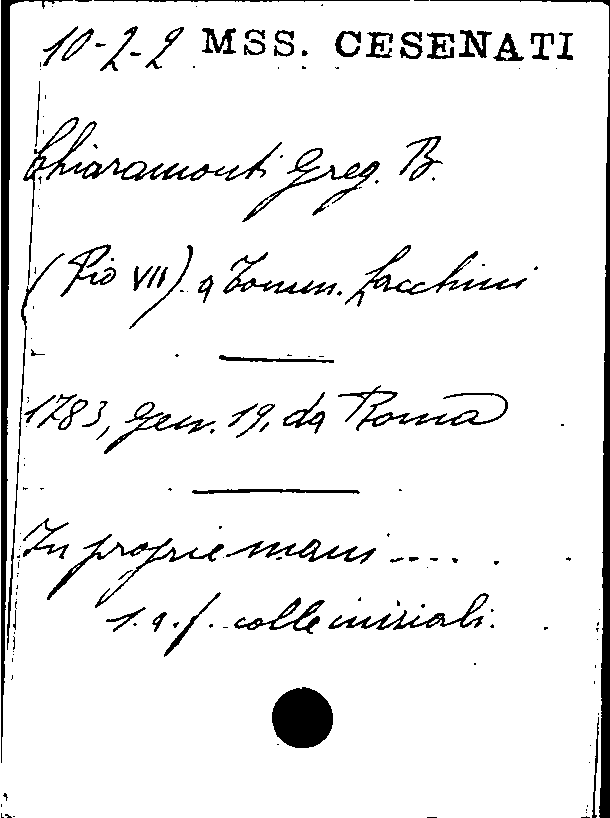 10-2-2 MSS. CESENATI
Chiaramonti Greg. B.
(Pio VII) a Tomm. Zacchini
1783, Gen. 19, da Roma
In proprie mani ....
1. a. f. colle iniziali.